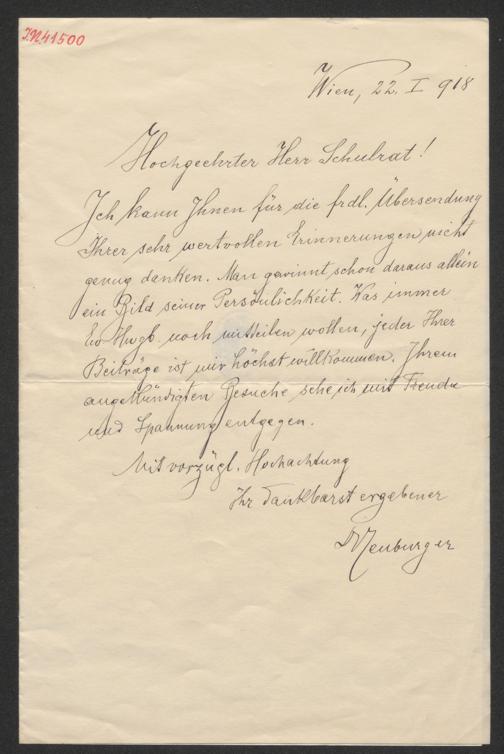 I.N. 41500
Wien, 22. I 918
Hochgeehrter Herr Schulrat!
Ich kann Ihnen für die frdl. Übersendung
Ihrer sehr wertvollen Erinnerungen nicht
genug danken. Man gewinnt schon daraus allein
ein Bild seiner Persönlichkeit. Was immer
Ew Hwgb. noch mitteilen wollen, jeder Ihrer
Beiträge ist mir höchst willkommen. Ihrem
angekündigten Besuche sehe ich mit Freude
und Spannung entgegen.
Mit vorzügl. Hochachtung
Ihr dankbarst ergebener
Neuburger